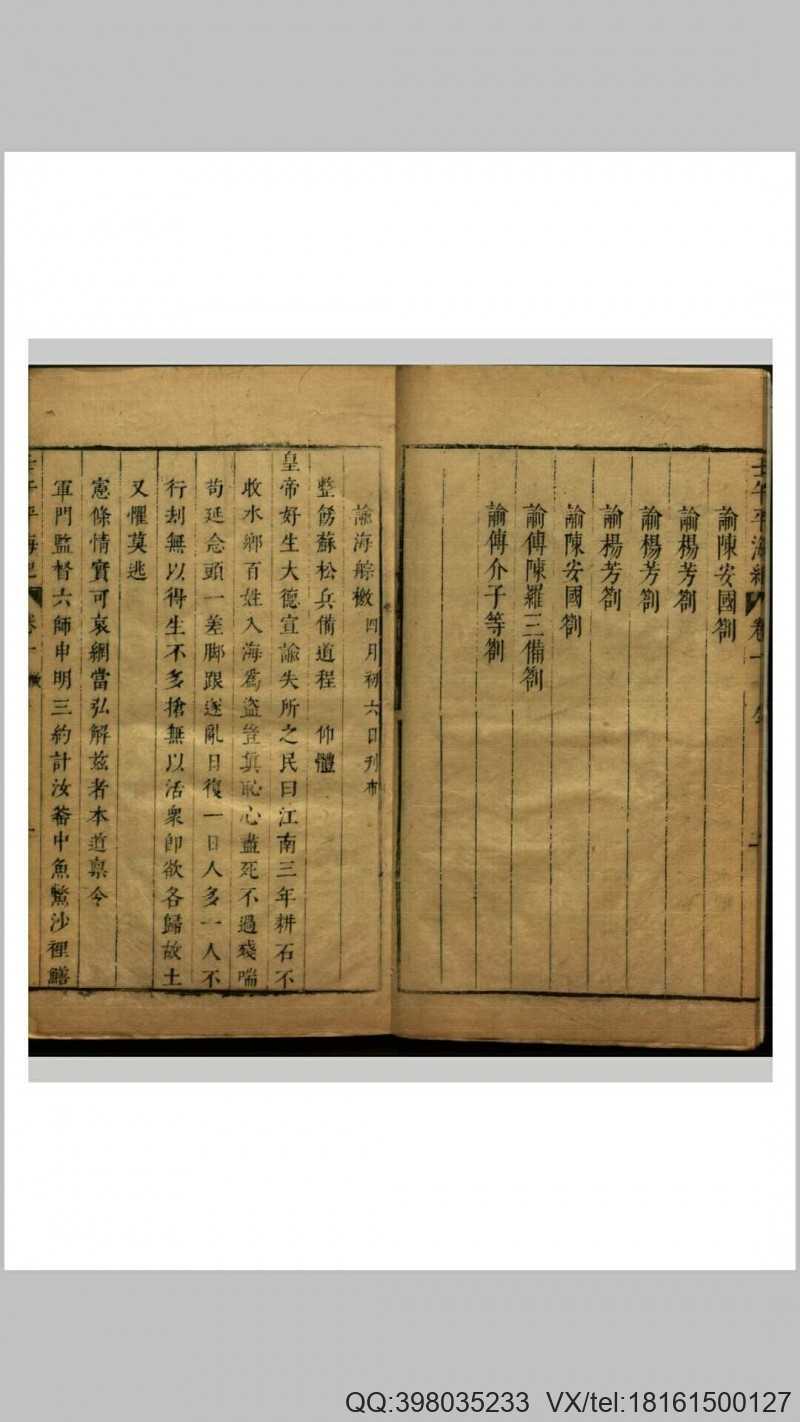 諭陳安國劄
諭楊芳劄
諭楊芳劄
諭楊芳劄
諭陳安國劄
諭傅陳羅三備劄
諭傅介子等劄
諭海䑸檄四月初六日刋布
整飭蘇松兵備道程 仰體
皇帝好生大德宣諭失所之民曰江南三年耕石不
收水鄉百姓入海爲盜豈眞恥心盡死不過殘喘
苟延念頭一差脚跟遂亂日復一日人多一人不
行刦無以得生不多搶無以活衆卽欲各歸故土
又懼莫逃
憲條情實可哀網當弘解兹者本道禀令
軍門監督六師申明三約計汝蓄中魚鱉沙裡鱔
壬午平海
卷一
QQ:398035233 VX/tel:18161500127